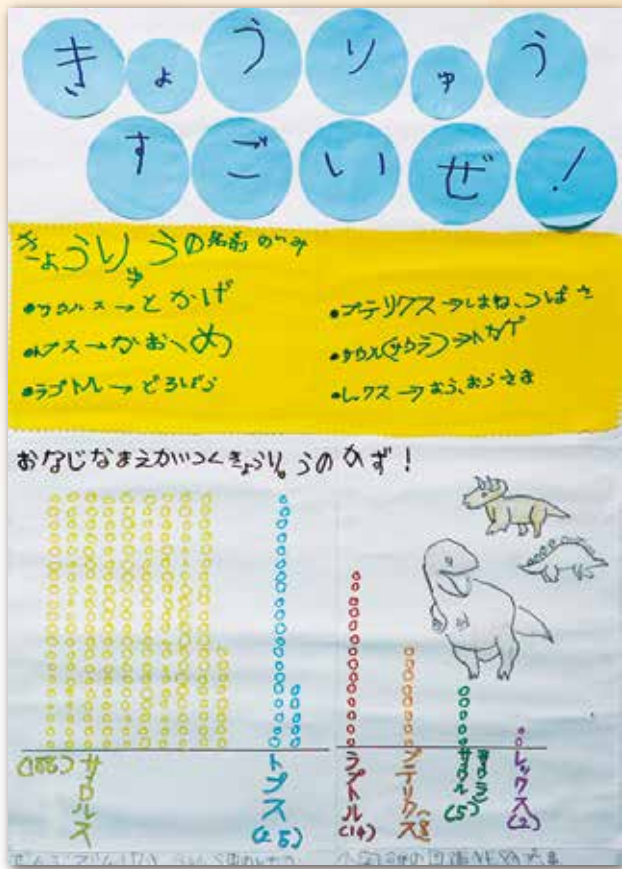 きょうりゅう
すごいぜ!
きょうりゅうの名前のいみ
•サウルス→とかげ
•トプス→かお、め
•ラプトル→どろぼう
•プテリクス→はね、つばさ
•サウル(サウラ)→トカゲ
•レックス→おう、おうさま
おなじなまえがつくきょうりゅうのかず!
サウルス
トプス
ラプトル(14)
プテリクス(8)
サウル(サウラ)(5)
レックス(2)